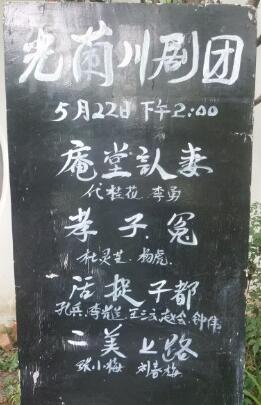 光菌川剧团
5月22日下午2:00
庵堂认妻
代桂花 李勇
孝子冤
杜灵芝 杨虎
活捉子都
孔兵 李 王 赵会 钟伟
二美上路
张小梅 刘春梅